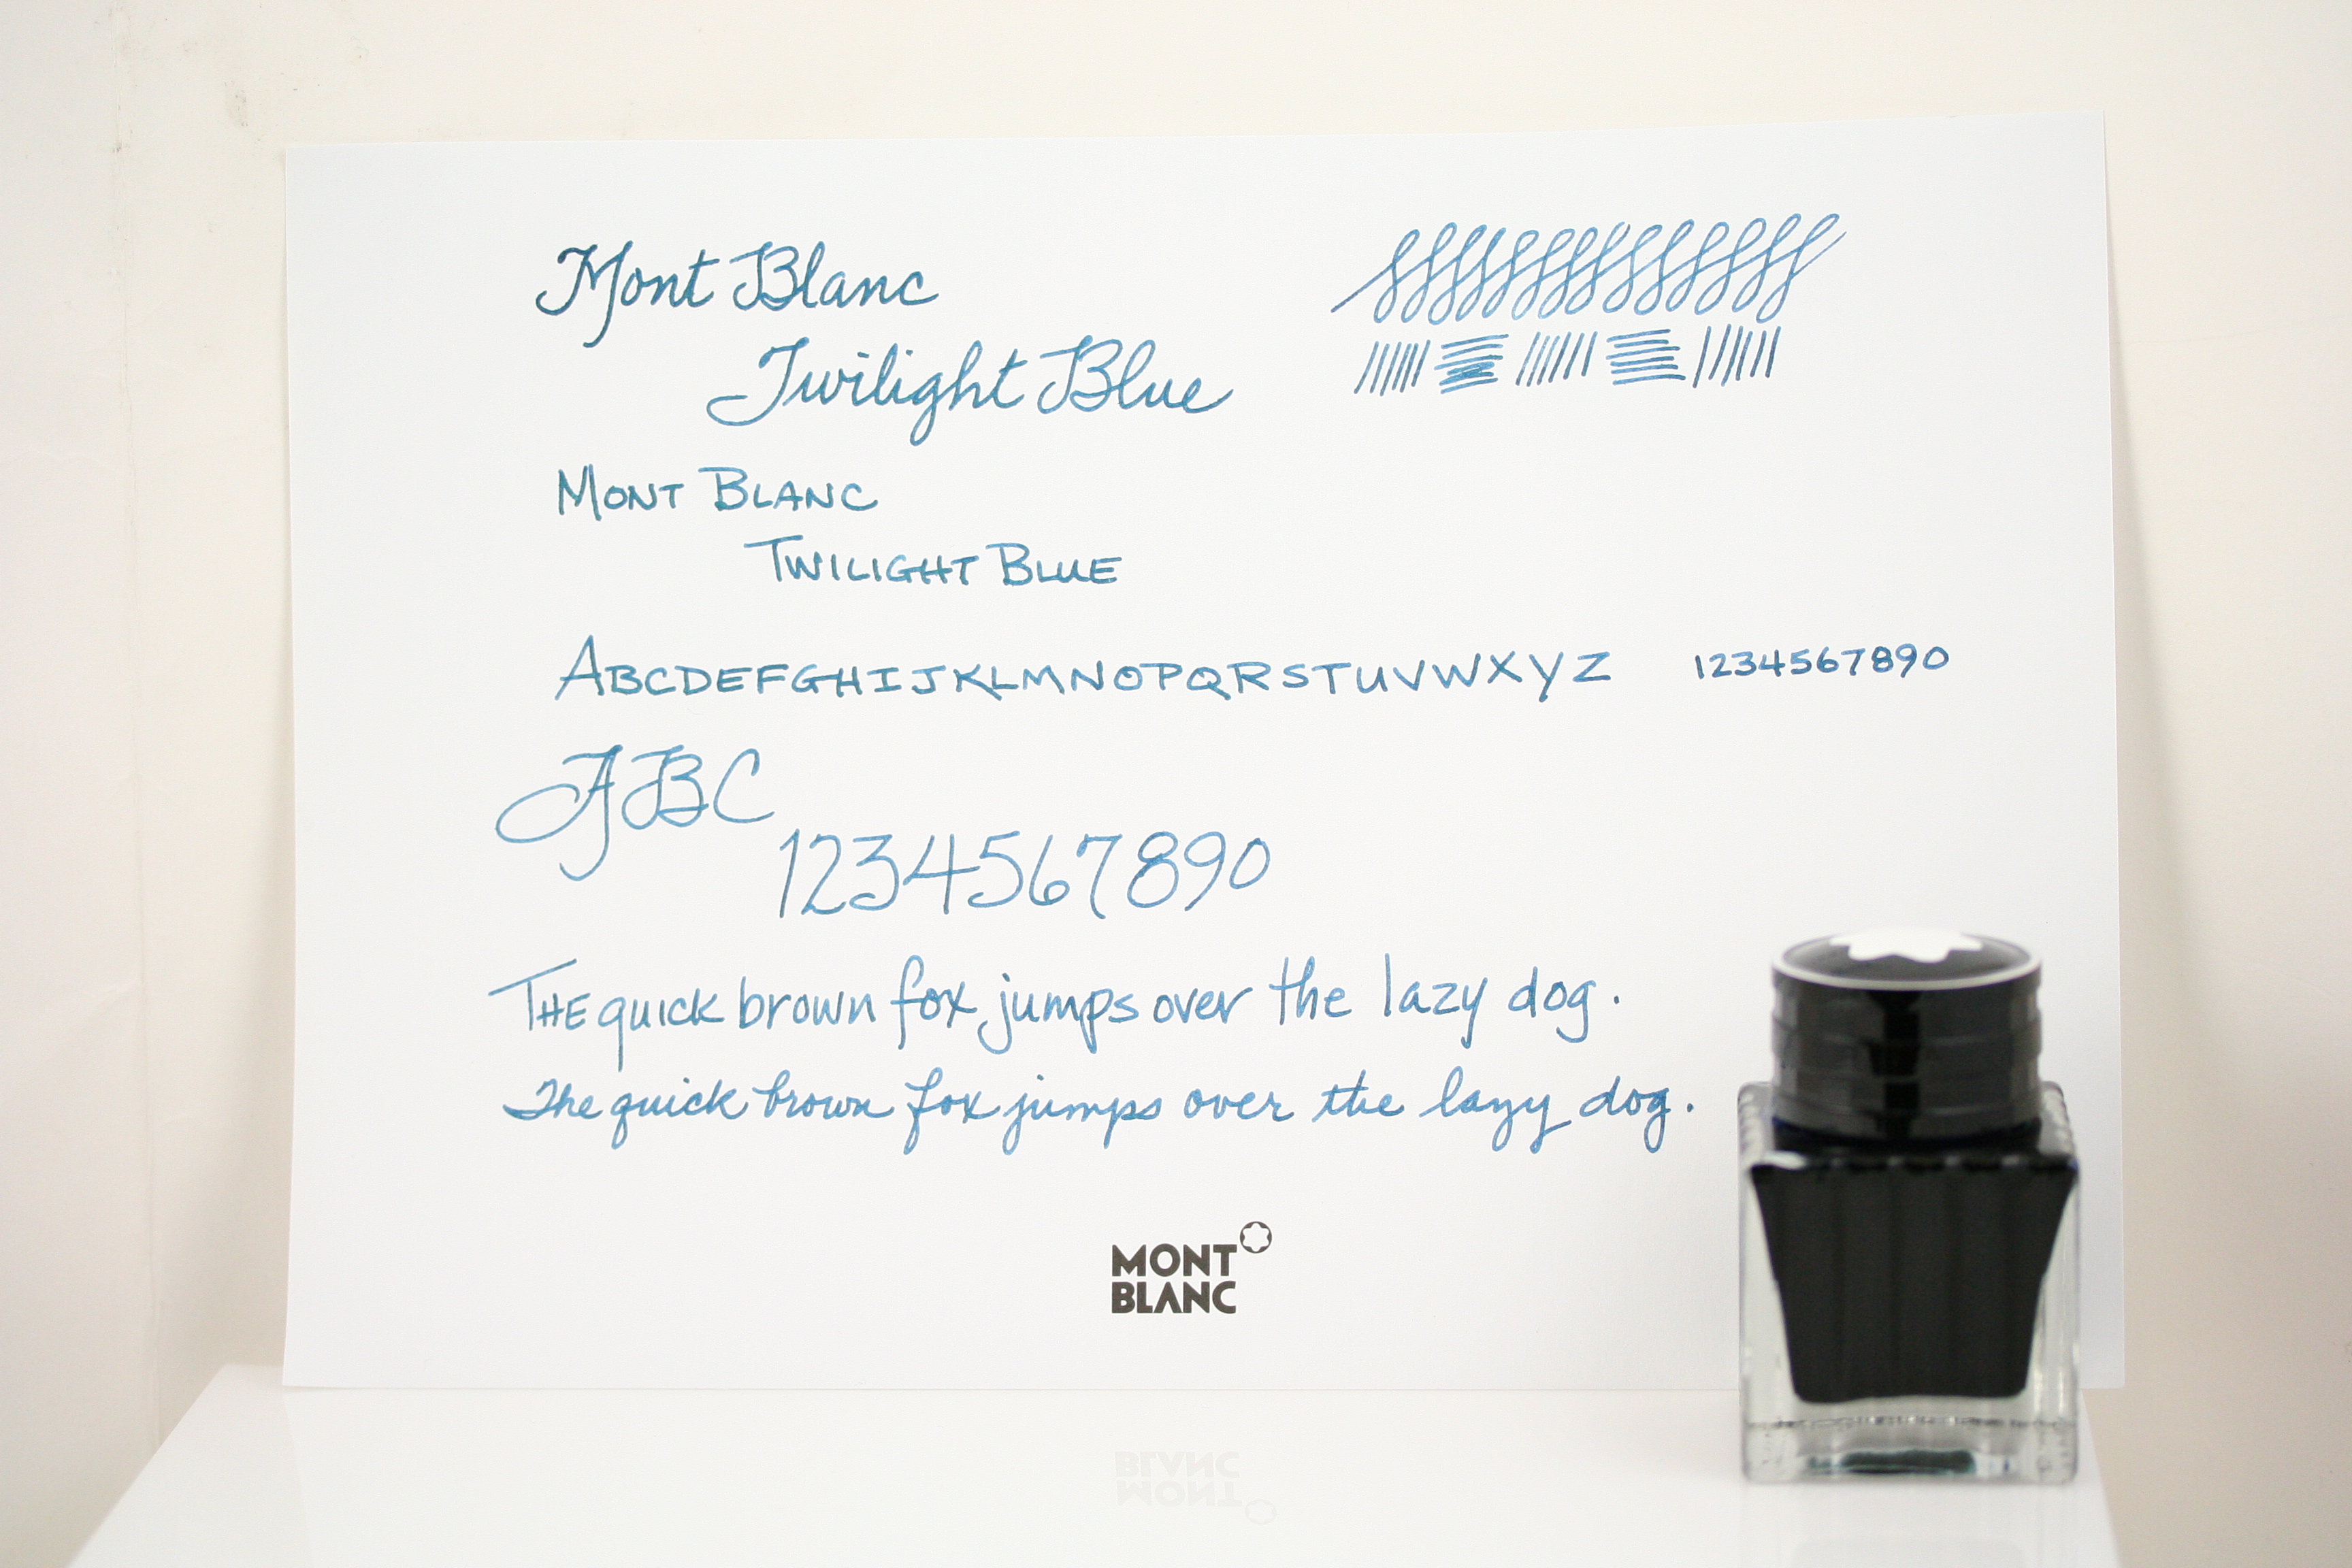 Mont Blanc
Twilight Blue
MONT BLANC
TWILIGHT BLUE
ABCDEFGHIJKLMNOPQRSTUVWXYZ 1234567890
ABC
1234567890
THE quick brown fox jumps over the lazy dog.
The quick brown fox jumps over the lazy dog.
MONT
BLANC